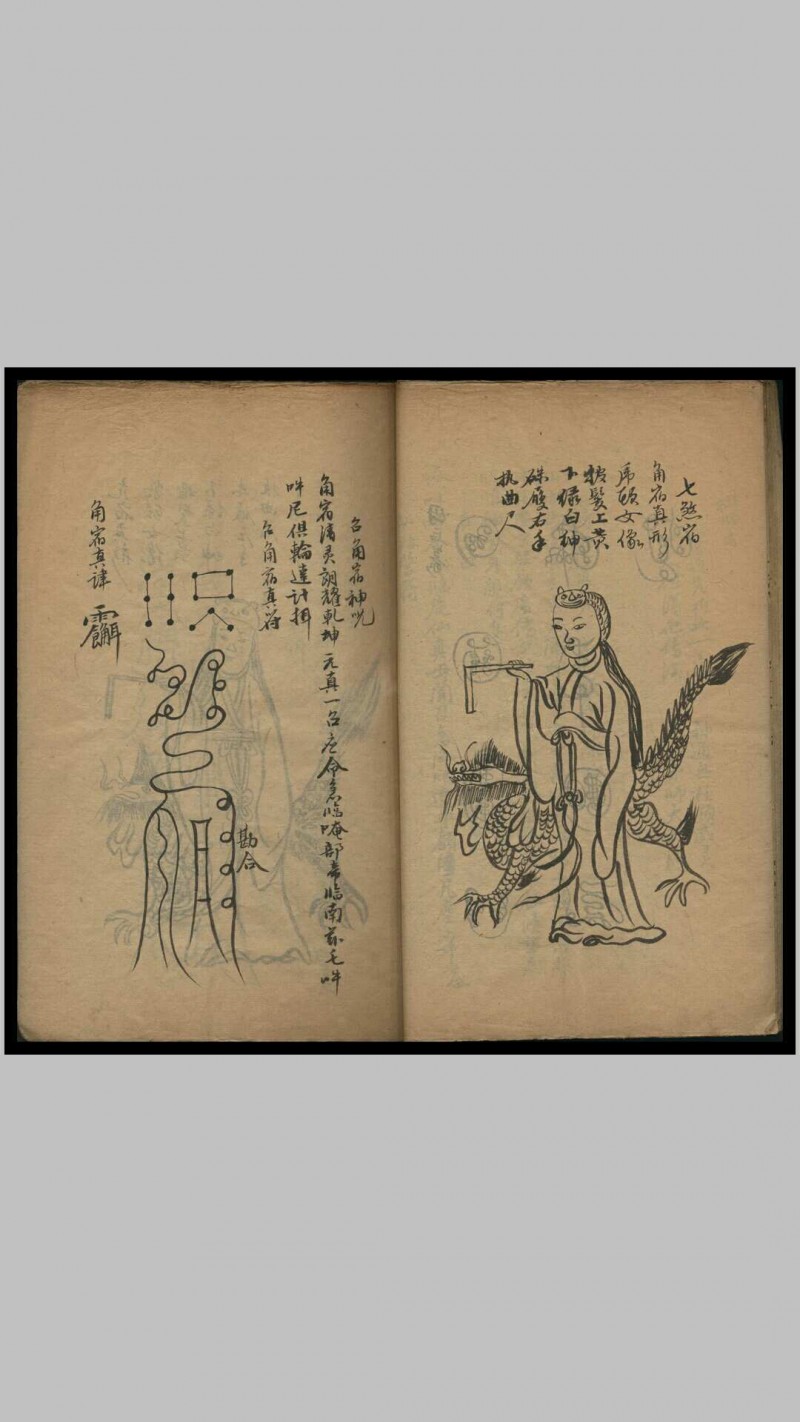 七煞宿
角宿真形
虎頭女像
披髮上黄
下緑白紳
硃履右手
执曲尺
召角宿神咒
角宿清灵朗耀乾坤元真一召应令急临唵部帝临南无毛吽
吽尼俱輪達计揖
召角宿真符
勘合
角宿真諱